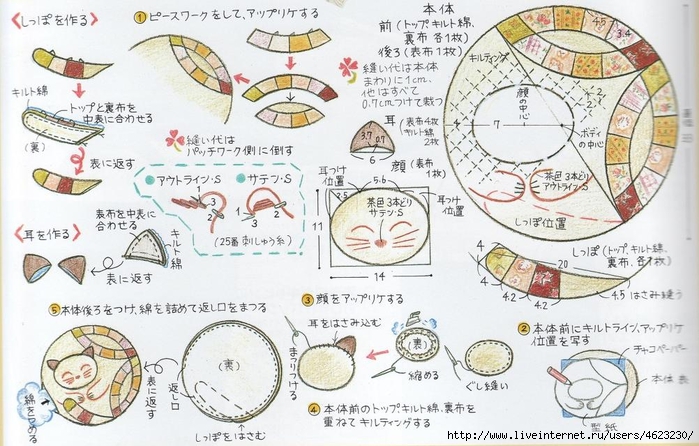 〈しっぽを作る〉
キルト綿
トップと裏布を
中表に合わせる
(裏)
表に返す
〈耳を作る〉
表布を中表に
合わせる
キルト綿
表に返す
① ピースワークをして、アップリケする
縫い代は
パッチワーク側に倒す
アウトライン・S
サテン・S
1
3
2
1
3
2
(25番刺しゅう糸)
本体
前(トップ、キルト綿、
裏布 各1枚)
後ろ(表布1枚)
縫い代は本体
まわりに1cm、
他はすべて
0.7cmつけて裁つ
キルティング
4.5
3.4
2
2
顔の
中心
4
7
ボディ
の中心
茶色3本どり
アウトラインS
しっぽ位置
耳(表布4枚
キルト綿
2枚)
3.7
0.7
6
顔(表布
1枚)
耳つけ
位置
5.6
2.5
耳つけ
位置
茶色3本どり
サテン・S
11
14
しっぽ(トップ、キルト綿、
裏布、各1枚)
4
20
4
4.2
4.2
4.5 はさみ縫う
② 本体前にキルトライン、アップリケ
位置を写す
チャコペーパー
本体表
型紙
③ 顔をアップリケする
耳をはさみ込む
まつりつける
(裏)
縮める
ぐし縫い
④ 本体前のトップ、キルト綿、裏布を
重ねてキルティングする
⑤ 本体後ろをつけ、綿を詰めて返し口をまつる
綿をつめる
表に返す
返し口
(裏)
しっぽをはさむ
http://www.liveinternet.ru/users/4623230/